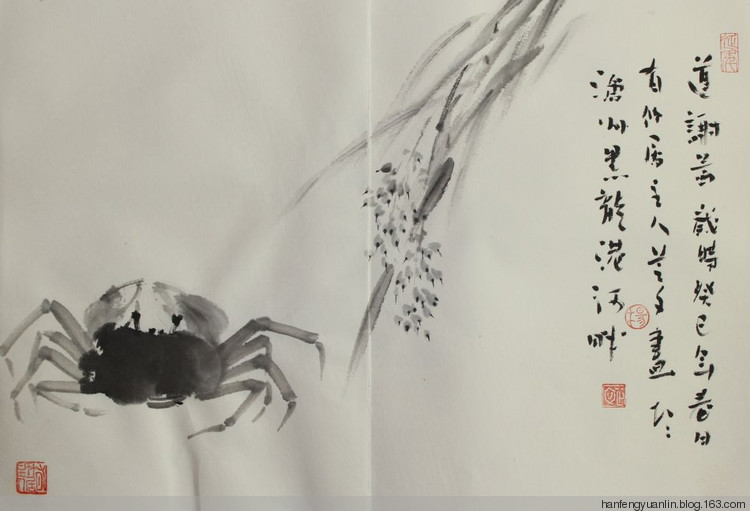 道謝 歲時癸巳年春日
有竹居主人 畫於
滄州黑龍港河畔
hanfengyuanlin.blog.163.com